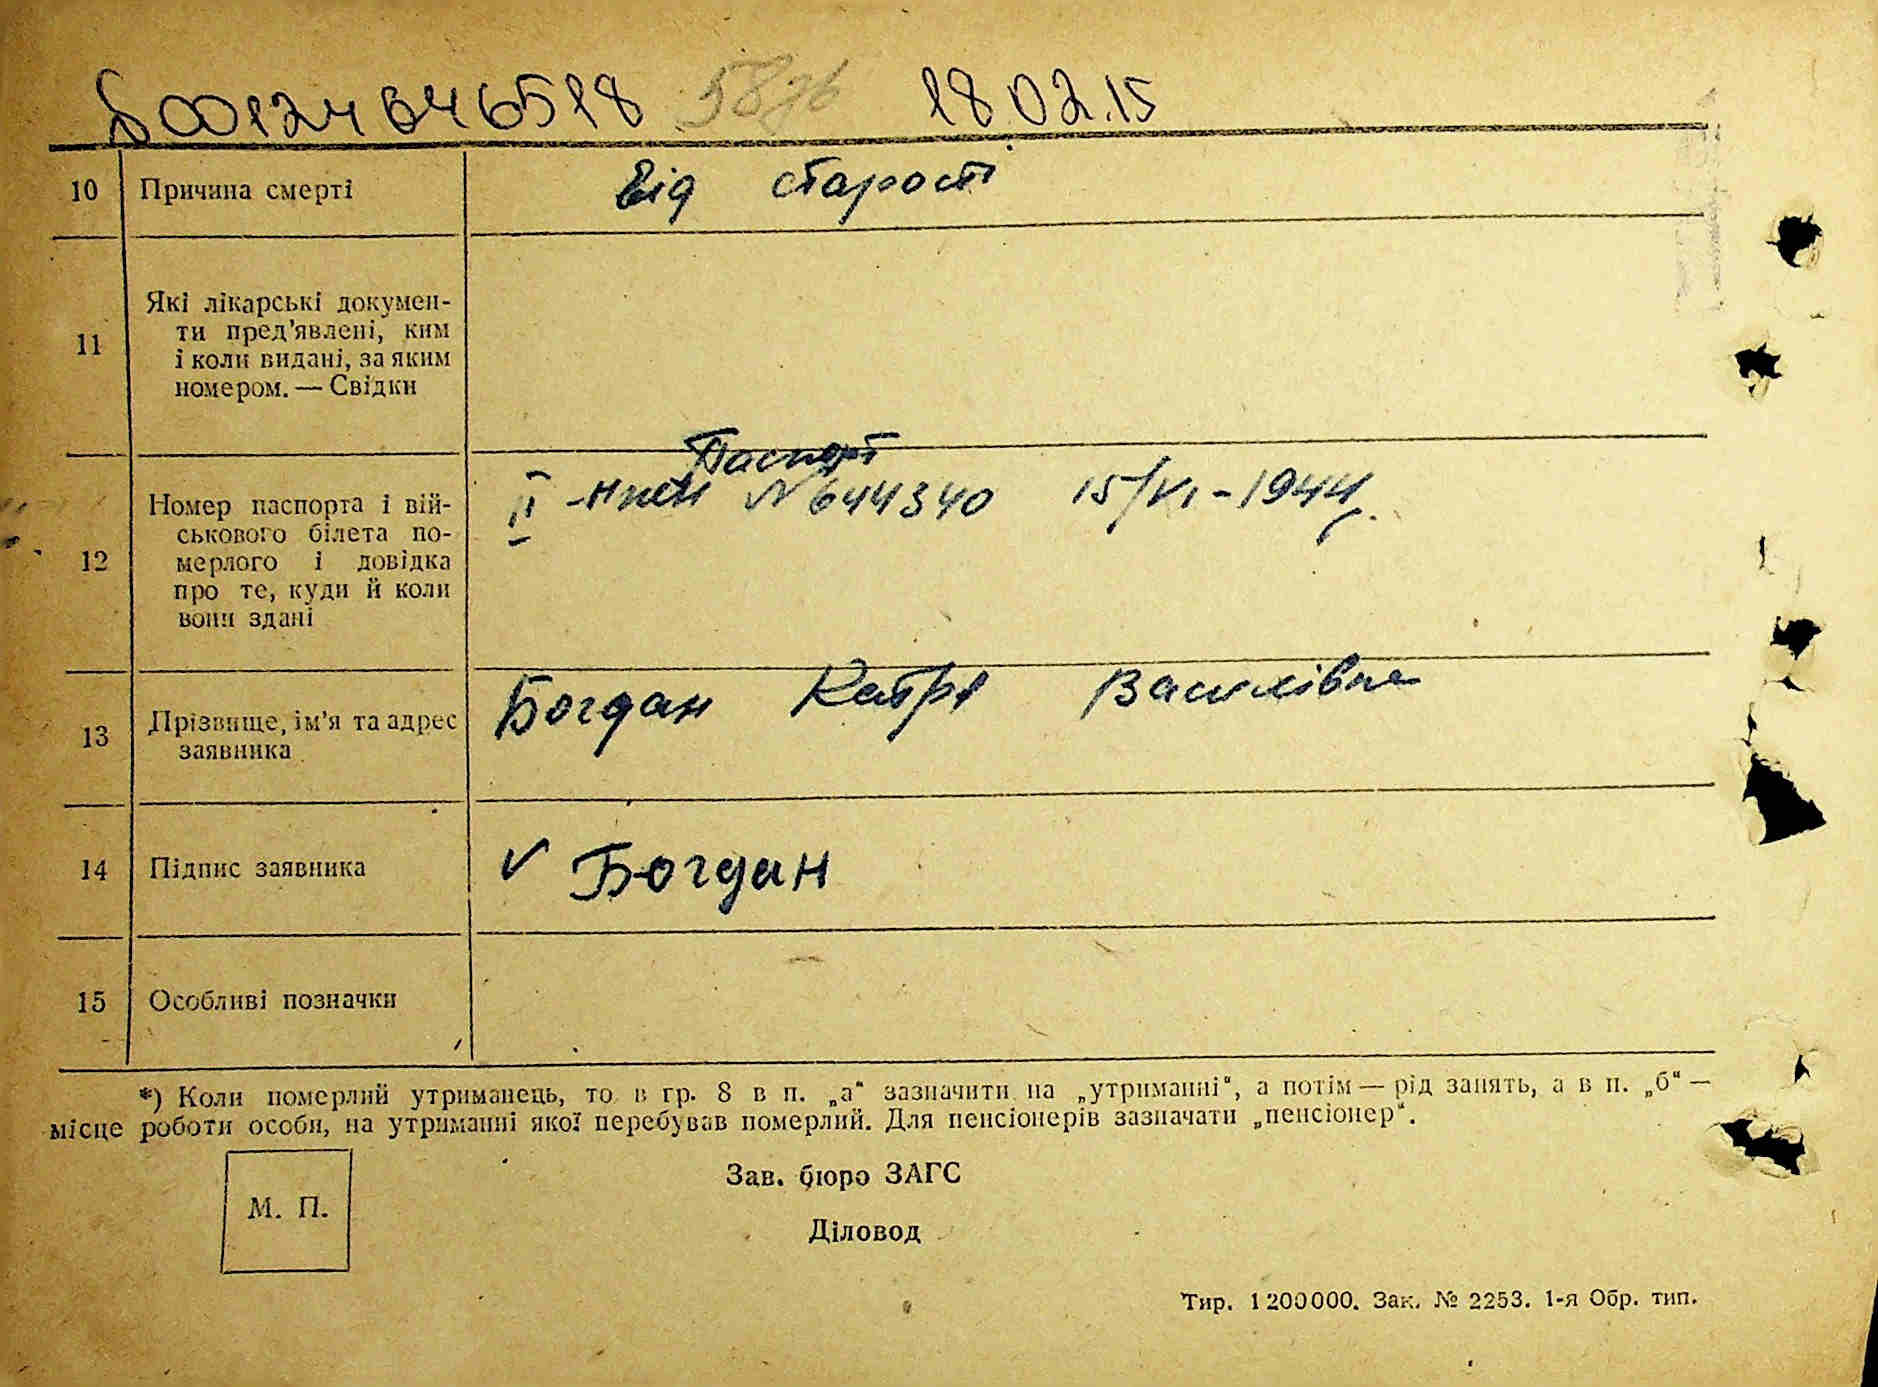 00124646518 58 18.02.15
10 Причина смерті Від старості
11 Які лікарські докумен-
ти пред'явлені, ким
і коли видані, за яким
номером. — Свідки
Паспорт
12 Номер паспорта і вій- II № 644340 15/VI-1944
ськового білета по-
мерлого і довідка
про те, куди й коли
вони здані
13 Прізвище, ім'я та адрес Богдан Катря Василівна
заявника
14 Підпис заявника V Богдан
15 Особливі позначки
*) Коли померлий утриманець, то в гр. 8 в п. „а“ зазначити на „утриманні“, а потім — рід занять, а в п. „б“ —
місце роботи особи, на утриманні якої перебував померлий. Для пенсіонерів зазначати „пенсіонер“.
Зав. бюро ЗАГС
М. П.
Діловод
Тир. 1200000. Зак. № 2253. 1-я Обр. тип.